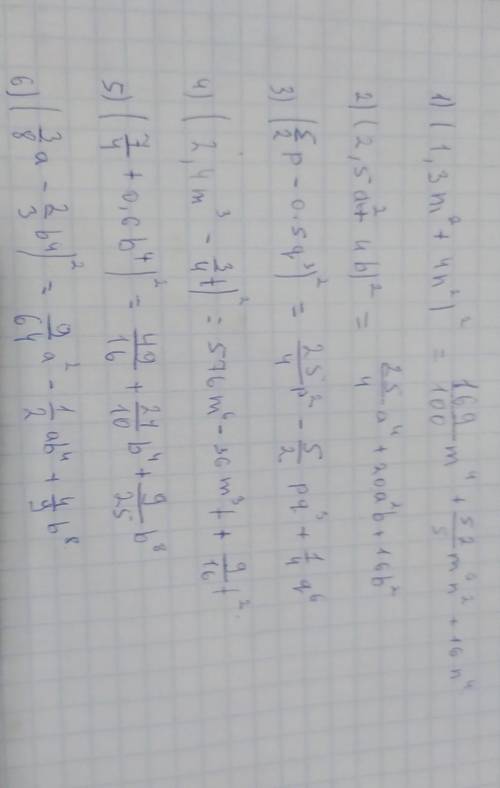 1) (1,3m² + 4n²)² = 169/100 m⁴ + 52/5 m²n² + 16n⁴
2) (2,5a² + 4b)² = 25/4 a⁴ + 20a²b + 16b²
3) (5/2 p - 0.5q³)² = 25/4 p² - 5/2 pq³ + 1/4 q⁶
4) (2,4m³ - 3/4 t)² = 576m⁶ - 36m³t + 9/16 t²
5) (7/4 + 0,6b⁴)² = 49/16 + 21/10 b⁴ + 9/25 b⁸
6) (3/8 a - 2/3 b⁴)² = 9/64 a² - 1/2 ab⁴ + 4/9 b⁸